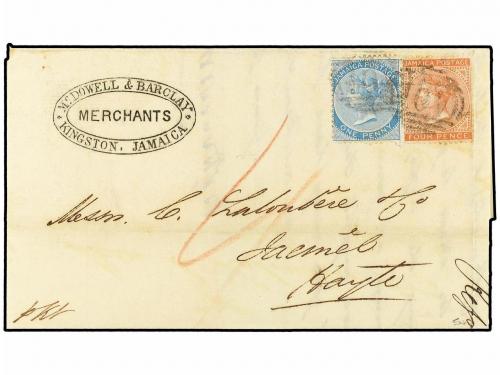 McDOWELL & BARCLAY
MERCHANTS
KINGSTON, JAMAICA
JAMAICA POSTAGE
ONE PENNY
JAMAICA POSTAGE
FOUR PENCE
Messrs. C. Laloubère & Co
Jacmèl
Hayti